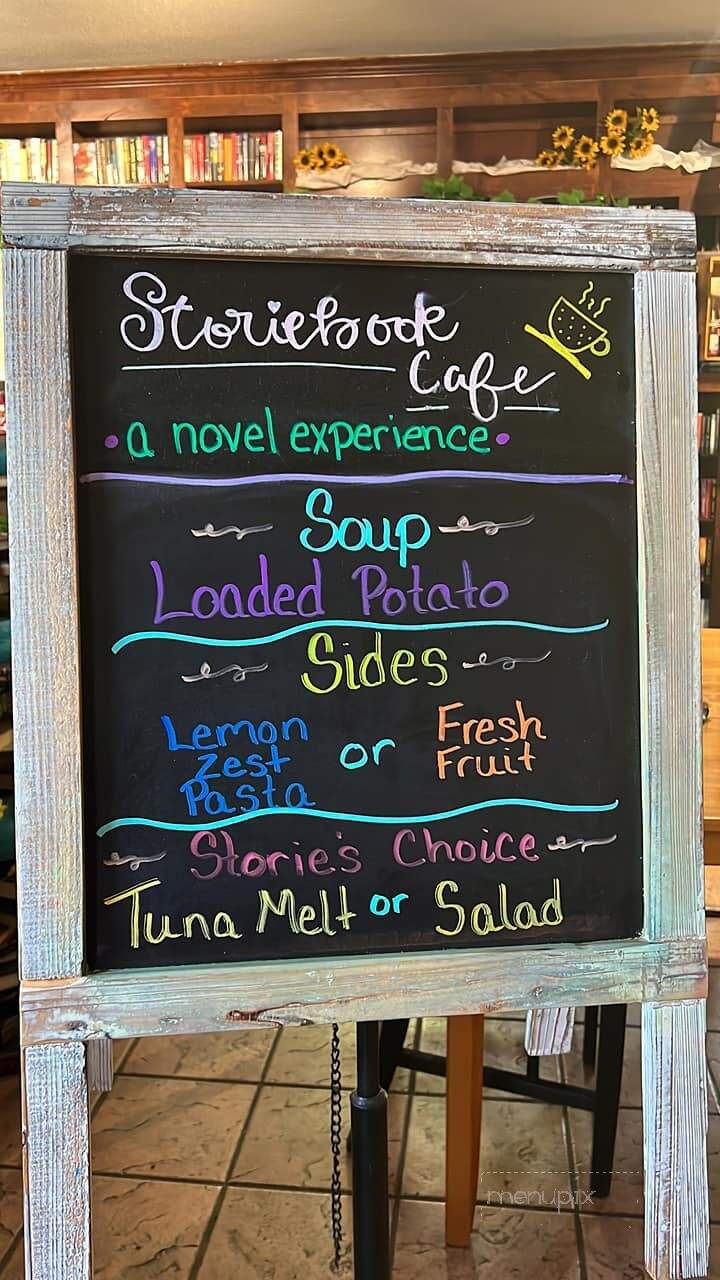 Storiebook
Cafe
•a novel experience•
Soup
Loaded Potato
Sides
Lemon
Zest
Pasta
or
Fresh
Fruit
Storie's Choice
Tuna Melt or Salad
menupix